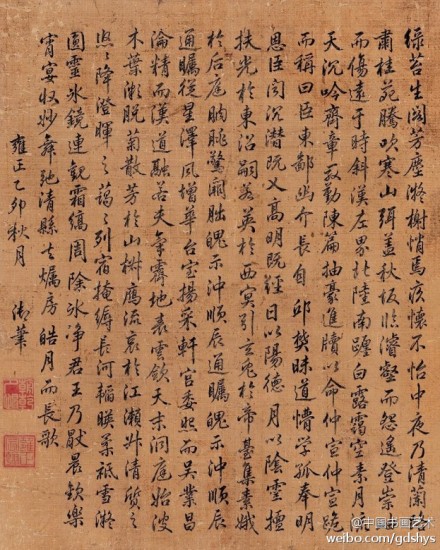 綠苔生閣芳塵凝榭悄焉疚懷不怡中夜乃清蘭路
肅桂苑騰吹寒山弭蓋秋坂臨濬壑而怨遙登崇岫
而傷遠于時斜漢左界北陸南躔白露靄空素月流
天沉吟齊章殷勤陳篇抽豪進牘以命仲宣仲宣跪
而稱曰臣東鄙幽介長自邱樊昧道懵學孤奉明
恩臣聞沉潛既义高明既經日以陽德月以陰靈擅
扶光於東沼嗣若英於西冥引玄兔於帝臺集素娥
於后庭朒朓驚闕朏魄示沖順辰通矚魄示沖順辰
通矚從星澤風增華台室揚采軒宮委照而吳業昌
淪精而漢道融若夫氣霽地表雲歛天末洞庭始波
木葉漸脫菊散芳於山椒雁流哀於江瀨升清質之
悠悠降澄暉之藹藹列宿掩縟長河韜映柔祇雪凝
圓靈水鏡連觀霜縞周除冰净君王乃厭晨歡樂
宵宴收妙舞弛清縣去燭房皓月而長歌
雍正乙卯秋月 御筆
@中国书画艺术
weibo.com/gdshys